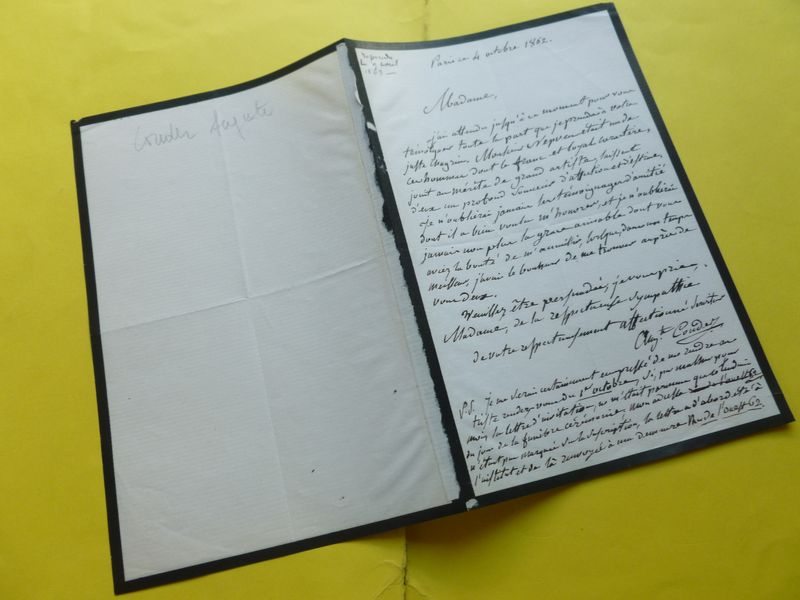 Couder Auguste
répondu
le 9 avril
1863
Paris ce 4 octobre 1862.
Madame,
j'ai attendu jusqu'à ce moment pour vous
témoigner toute la part que je prends à votre
juste chagrin. Monsieur était un de
ces hommes dont le franc et loyal caractère,
joint au mérite de grand artiste, laissent
d'eux un profond souvenir d'affection et d'estime,
Je n'oublierai jamais les témoignages d'amitié
dont il a bien voulu m'honorer, et je n'oublierai
jamais non plus la grace aimable dont vous
aviez la bonté de m'accueillir, lorsque, dans un temps
meilleur, j'avais le bonheur de me trouver auprès de
vous deux.
Veuillez être persuadée, je vous prie,
Madame, de la respectueuse sympathie
de votre respectueusement affectionné serviteur
Aug.te Couder
P.S. Je me serais certainement empressé de me rendre au
triste rendez-vous du 1er octobre, si, par malheur pour
moi, la lettre d'invitation, ne m'était parvenue que le lundi
du jour de la funèbre cérémonie. mon adresse rue de l'ouest 62
n'étant pas marquée sur la suscription, la lettre a d'abord été à
l'institut et de là renvoyée à ma demeure Rue de l'ouest 62